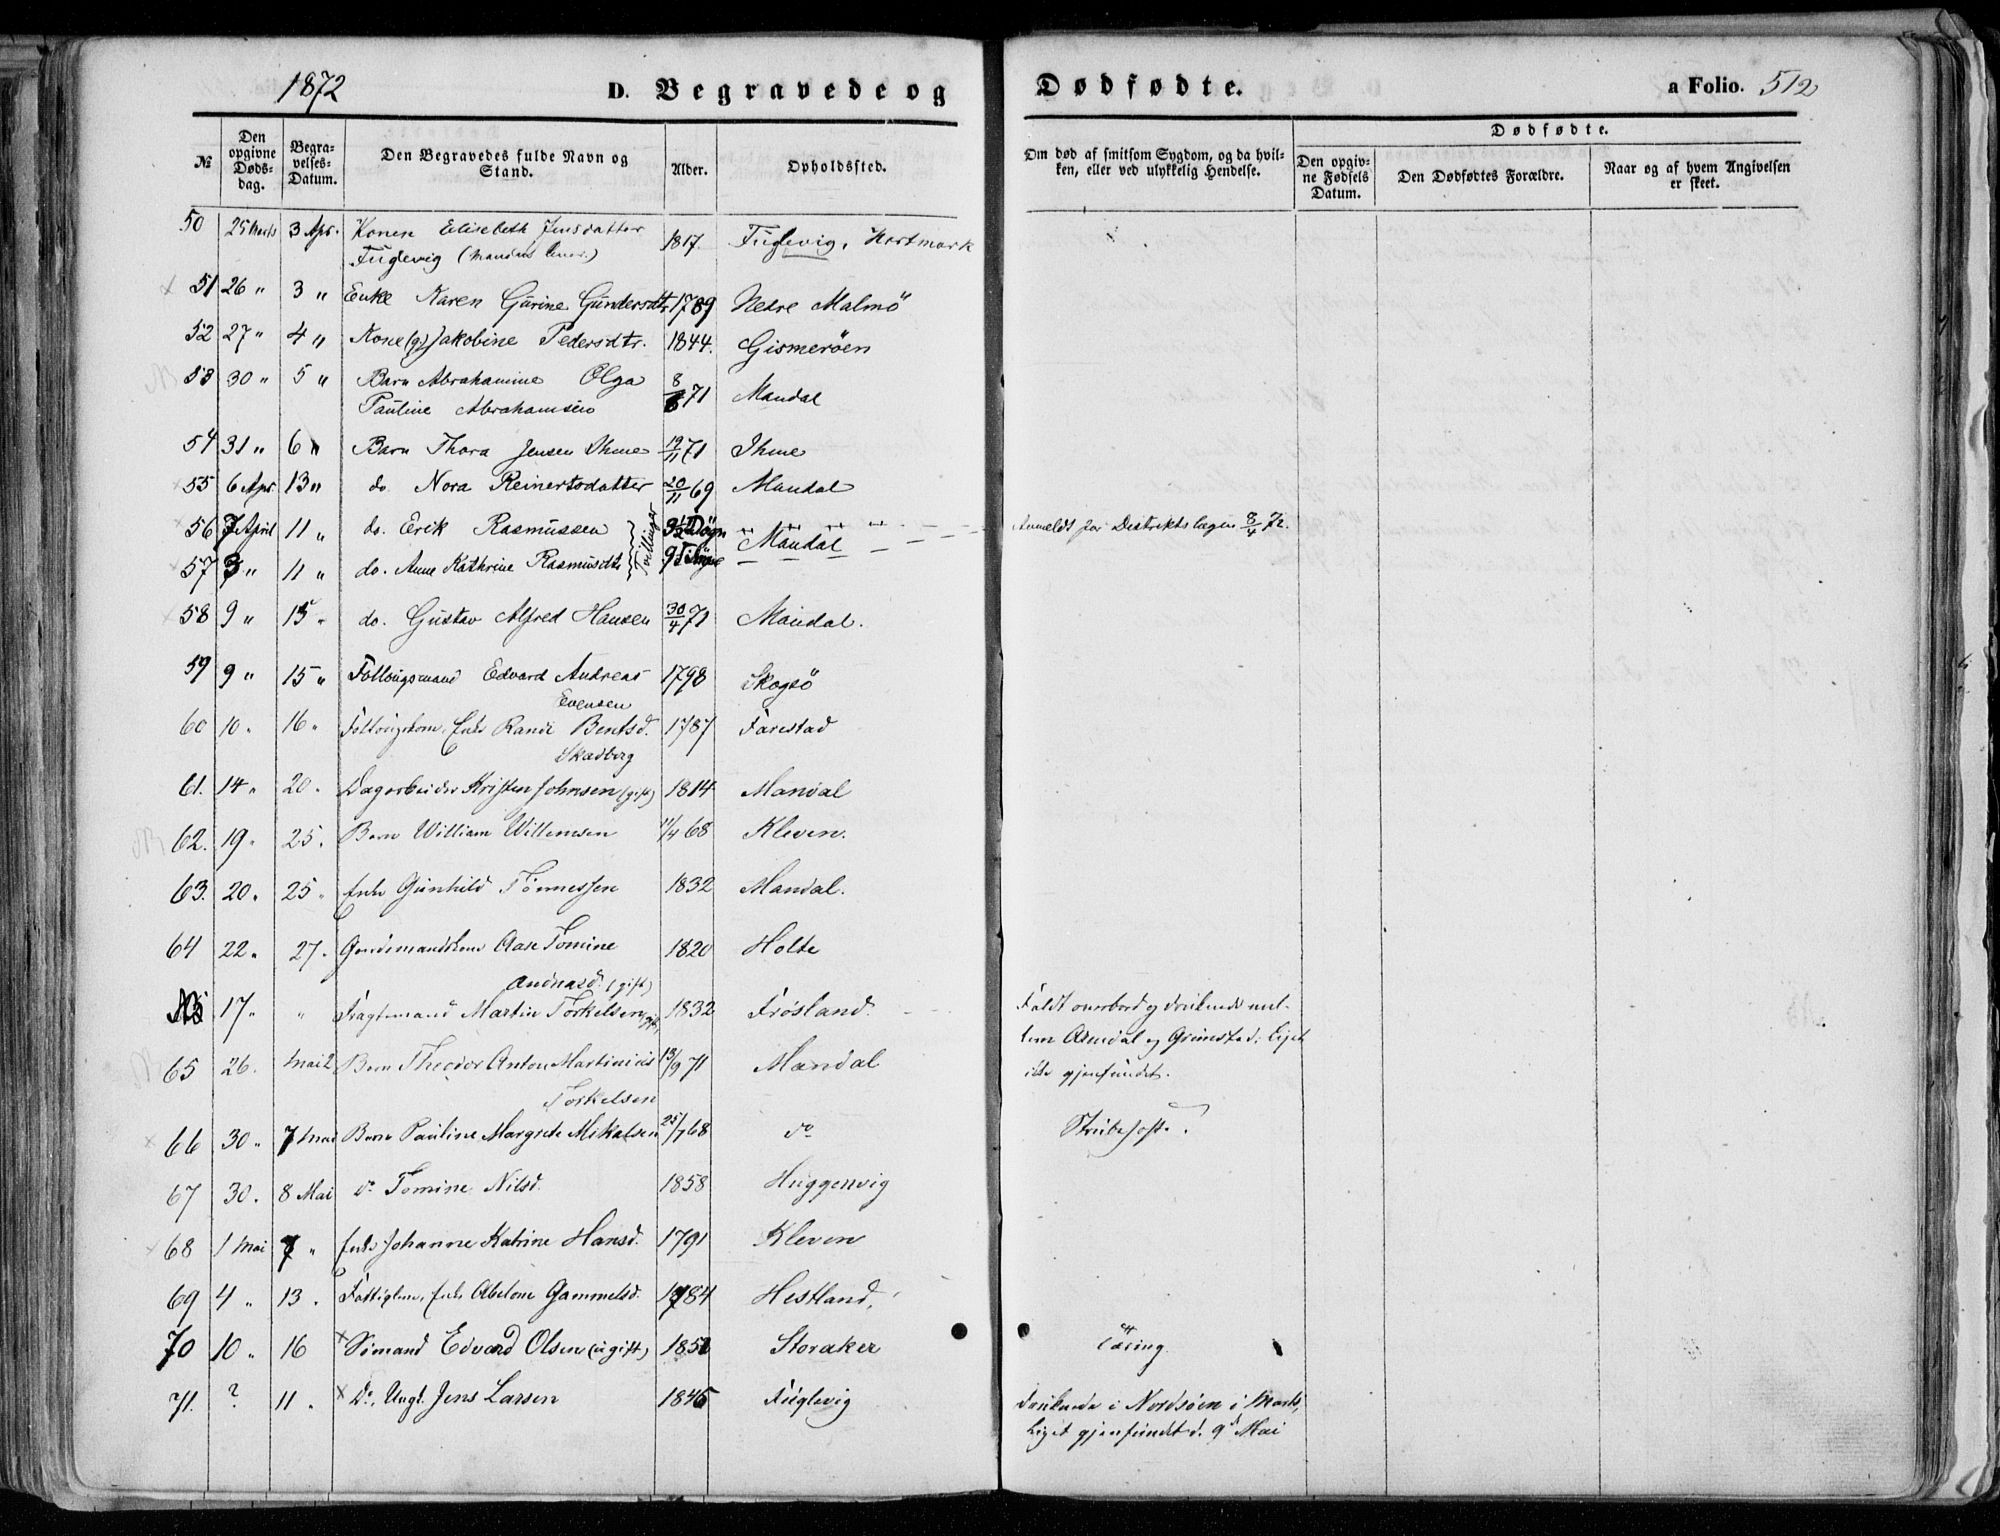 1872 D. Begravede og Dødfødte. a Folio. 512
№ Den opgivne Døds-dag. Begra-velses-Datum. Den Begravedes fulde Navn og Stand. Alder. Opholdssted. Om død af smitsom Sygdom, og da hvil-ken, eller ved ulykkelig Hendelse. Dødfødte. Den opgiv-ne Fødsels Datum. Den Dødfødtes Forældre. Naar og af hvem Angivelsen er skeet.
50 25 Marts 3 Apr. Konen Elisebeth Jensdatter 1817. Fuglevig, Hartmark
Fuglevig
51 26 " 3 " Enke Karen Gurine Gundersdtr 1789 Nedre Malmö
52 27 " 4 " Kone (g) Jakobine Pedersdtr. 1844. Gismerøen
53 30 " 5 " Barn Abrahamine Olga 8/6 71 Mandal
Pauline Abrahamsen
54 31 " 6 " Barn Thora Jensen Ihme 19/11 71 Ihme
55 6 Apr 13 " do Nora Reinertsdatter 20/11 69 Mandal
56 7 April 11 " do. Erik Rasmussen Tvillinger 9½ Døgn Mandal Anmeldt for Distriktslægen 8/4 72.
57 " 11 " do. Anne Kathrine Rasmusdtr
58 9 " 15 " do. Gustav Alfred Hansen 30/4 71 Mandal.
59 9 " 15 " Follougsmand Edvard Andreas 1798 Skogsö
Evensen
60 10 " 16 " Enke Randi Bentsd. 1787 Farestad
Skadberg
61. 14 " 20 " Dagarbeider Kristen Johnsen (gift) 1814 Mandal
62. 19 " 25. Barn William Willemsen 11/4 68 Kleven.
63. 20 " 25 " Enke Gunhild Tönnessen 1832 Mandal.
64 22 " 27. Aase Tomine 1820 Holte
Andreasd. (gift)
17 " " Fragtemand Martin Torkelsen gift 1832 Frøsland. Faldt overbord og druknede mel-
lem Arendal og Grimstad; Liget
ikke gjenfundet.
65 26. Mai 2 Barn Theodor Anton Martinius 13/9 71 Mandal
Torkelsen
66 30 " 7 Mai Barn Pauline Margrete Mikalsen 25/7 68 do Strubehoste.
67 30. 8 Mai do Tomine Nilsd. 1858 Huggenvig
68 1 Mai 7 " Enke Johanne Katrine Hansd. 1791 Kleven
69 4 " 13. Fattiglem, Enke Abelone Gammelsd. 1784 Hestland,
70 10 " 16 × Sömand Edvard Olsen (ugift) 1851 Storaker Tæring
71. ? 11. × Do, Ungk. Jens Larsen 1846 Fuglevig druknede i Nordsøen i Marts,
Liget gjenfundet d. 9d Mai